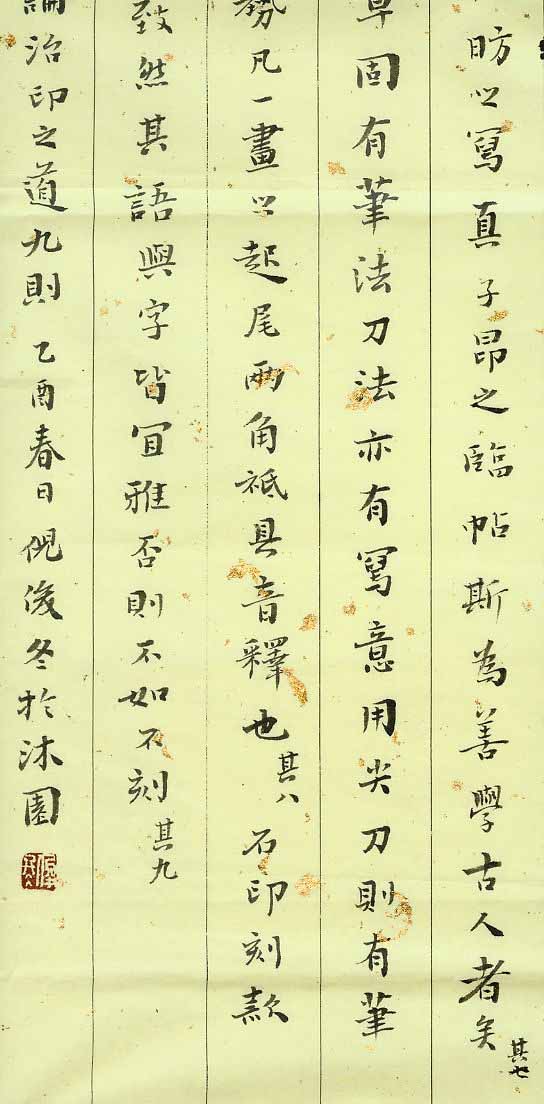 昉之寫真子昂之臨帖斯為善學古人者矣其七
固有筆法刀法亦有寫意用尖刀則有筆
勢凡一畫之起尾兩角祗具音釋也其八石印刻款
致然其語與字皆宜雅否則不如不刻其九
論治印之道九則乙酉春日倪浚冬於沐園